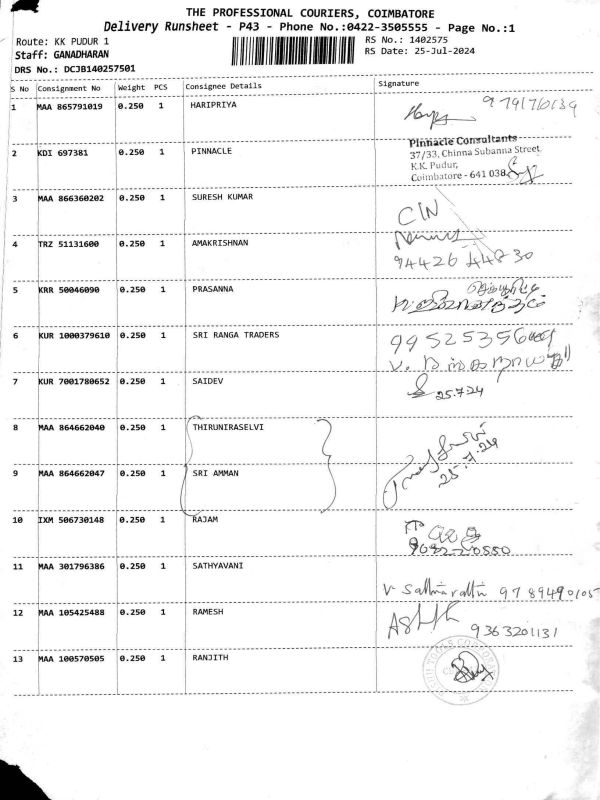 THE PROFESSIONAL COURIERS, COIMBATORE
Delivery Runsheet - P43 - Phone No.:0422-3505555 - Page No.:1
Route: KK PUDUR 1
RS No.: 1402575
Staff: GANADHARAN
RS Date: 25-Jul-2024
DRS No.: DCJB140257501
S No Consignment No Weight PCS Consignee Details Signature
1 MAA 865791019 0.250 1 HARIPRIYA
Pinnacle Consultants
37/33, Chinna Subanna Street,
K.K. Pudur,
Coimbatore - 641 038
2 KDI 697381 0.250 1 PINNACLE
3 MAA 866360202 0.250 1 SURESH KUMAR
CIN
4 TRZ 51131600 0.250 1 AMAKRISHNAN
94426 44830
5 KRR 50046090 0.250 1 PRASANNA
6 KUR 1000379610 0.250 1 SRI RANGA TRADERS
7 KUR 7001780652 0.250 1 SAIDEV
25.7.24
8 MAA 864662040 0.250 1 THIRUNIRASELVI
25.7.24
9 MAA 864662047 0.250 1 SRI AMMAN
10 IXM 506730148 0.250 1 RAJAM
11 MAA 301796386 0.250 1 SATHYAVANI
97 89490105
12 MAA 105425488 0.250 1 RAMESH
9363201131
13 MAA 100570505 0.250 1 RANJITH